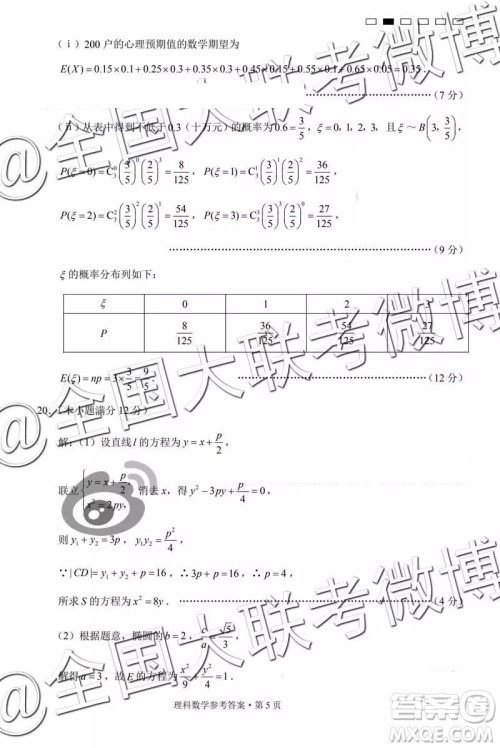 （ⅰ）200 户的心理预期值的数学期望为
E(X) = 0.15×0.1 + 0.25×0.3 + 0.35×0.3 + 0.45×0.1 + 0.55×0.1 + 0.65×0.05 = 0.35.
（7 分）
（ⅱ）从表中得到不低于0.3（十万元）的概率为 0.6 = 3/5，ξ = 0，1，2，3，且 ξ ~ B(3, 3/5)，
P(ξ=0) = C₃⁰(3/5)⁰(2/5)³ = 8/125，P(ξ=1) = C₃¹(3/5)¹(2/5)² = 36/125，
P(ξ=2) = C₃²(3/5)²(2/5)¹ = 54/125，P(ξ=3) = C₃³(3/5)³(2/5)⁰ = 27/125，
（9 分）
ξ 的概率分布列如下：
ξ 0 1 2 3
P 8/125 36/125 54/125 27/125
E(ξ) = np = 3×3/5 = 9/5.
（12 分）
20.（本小题满分 12 分）
解：（1）设直线 l 的方程为 y = x + p/2，
联立 { y = x + p/2，x² = 2py， 消去 x，得 y² − 3py + p²/4 = 0，
则 y₁ + y₂ = 3p，y₁y₂ = p²/4，
∵|CD| = y₁ + y₂ + p = 16，∴3p + p = 16，∴p = 4，
所求 S 的方程为 x² = 8y.（4 分）
（2）根据题意，椭圆的 b = 2，c/a = √5/3，
解得 a = 3，故 E 的方程为 x²/9 + y²/4 = 1.
理科数学参考答案·第 5 页
@全国大联考微博
@全国大联考微博
@全国大联考微博